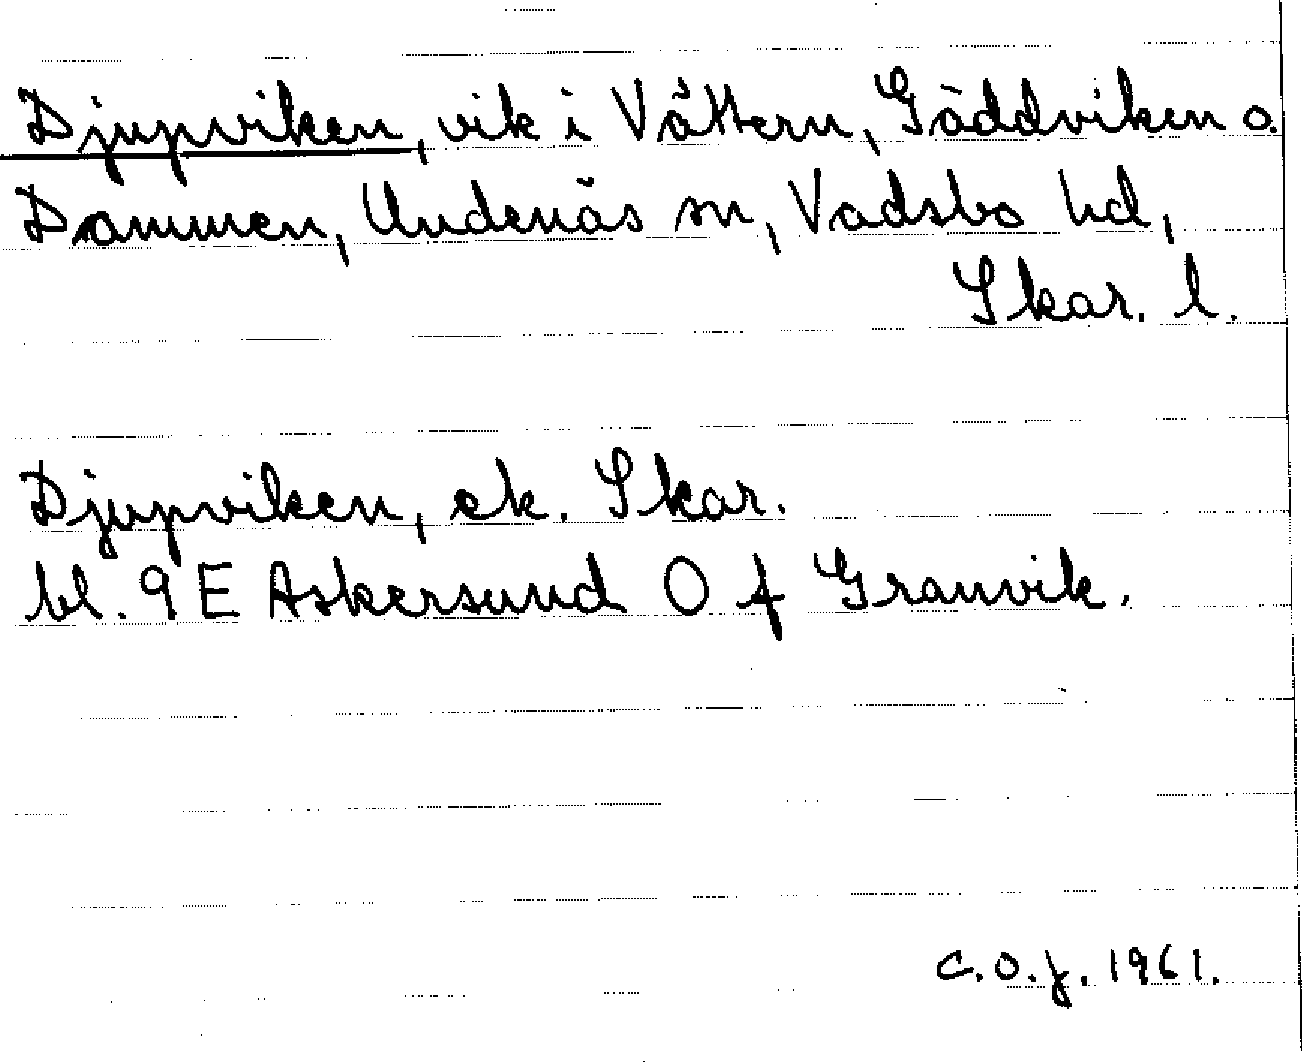 Djupviken, vik i Vättern, Gäddviken o.
Dammen, Undenäs sn, Vadsbo hd,
Skar. l.
Djupviken, ek. Skar.
bl. 9 E Askersund O f Granvik.
C.O.J. 1961.